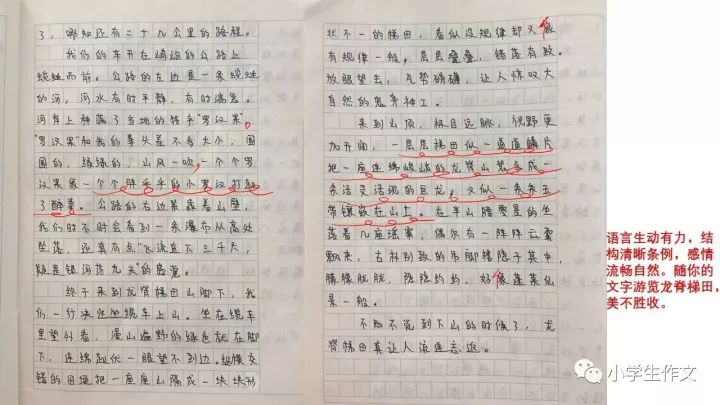 了，哪知还有二十九公里的路程。
我们的车开在崎岖的公路上
蜿蜒而前。公路的左边是一条蜿蜒
的河，河水有时平静，有时湍急。
河岸上种满了当地的特产“罗汉果”。
“罗汉果”和我的拳头差不多大小，圆
圆的，绿绿的，山风一吹，一个个罗
汉果象一个个胖乎乎的小罗汉打起
了醉拳。公路的右边紧靠着山壁，
我们时不时会看到一条瀑布从高处
坠落，还真有点“飞流直下三千尺，
疑是银河落九天”的感觉。
终于来到龙脊梯田山脚下，我
们一行决定坐缆车上山。坐在缆车
里望外看，漫山遍野的绿色就在脚
下，连绵起伏一眼望不到边。纵横交
错的田埂把一座座山隔成一块块形
状不一的梯田，看似没规律却又像
有规律一般，层层叠叠，错落有致。
放眼望去，气势磅礴，让人惊叹大
自然的鬼斧神工。
来到山顶，极目远眺，视野更
加开阔，一层层梯田似一道道鳞片
把一座连绵峻峭的龙脊山装点成一
条活灵活现的巨龙，又似一条条玉
带镶嵌在山上。在半山腰零星的坐
落着几座瑶寨，偶尔有一阵阵云雾
飘来，古朴别致的吊脚楼隐于其中，
朦朦胧胧，隐隐约约，好像蓬莱仙
景一般。
不知不觉到下山的时候了，龙
脊梯田真让人流连忘返。
语言生动有力，结
构清晰条例，感情
流畅自然。随你的
文字游览龙脊梯田，
美不胜收。
小学生作文